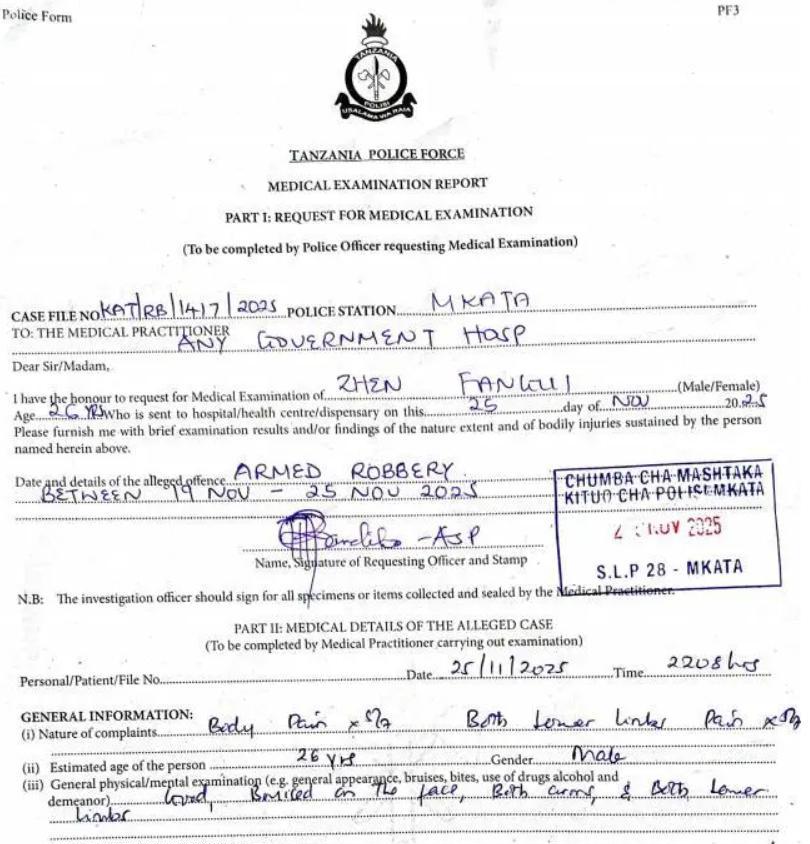 Police Form
PF3
TANZANIA
POLISI
USALAMA WA RAIA
TANZANIA POLICE FORCE
MEDICAL EXAMINATION REPORT
PART I: REQUEST FOR MEDICAL EXAMINATION
(To be completed by Police Officer requesting Medical Examination)
CASE FILE NO KAT/RB/1417/2025 POLICE STATION MKATA
TO: THE MEDICAL PRACTITIONER
ANY GOVERNMENT HOSP
Dear Sir/Madam,
I have the honour to request for Medical Examination of ZHEN FANGUI (Male/Female)
Age 26 YRS Who is sent to hospital/health centre/dispensary on this 25 day of NOV 2025
Please furnish me with brief examination results and/or findings of the nature extent and of bodily injuries sustained by the person
named herein above.
Date and details of the alleged offence ARMED ROBBERY
BETWEEN 19 NOV - 25 NOV 2025
CHUMBA CHA MASHTAKA
KITUO CHA POLISI MKATA
NOV 2025
S.L.P 28 - MKATA
-ASP
Name, Signature of Requesting Officer and Stamp
N.B: The investigation officer should sign for all specimens or items collected and sealed by the Medical Practitioner.
PART II: MEDICAL DETAILS OF THE ALLEGED CASE
(To be completed by Medical Practitioner carrying out examination)
Personal/Patient/File No. Date 25/11/2025 Time 2208 hrs
GENERAL INFORMATION:
(i) Nature of complaints Body Pain x 5/7 Both Lower limbs Pain x 5/7
(ii) Estimated age of the person 26 yrs Gender Male
(iii) General physical/mental examination (e.g. general appearance, bruises, bites, use of drugs alcohol and
demeanor) Good, Bruised on the face, Both arms, & Both Lower
limbs